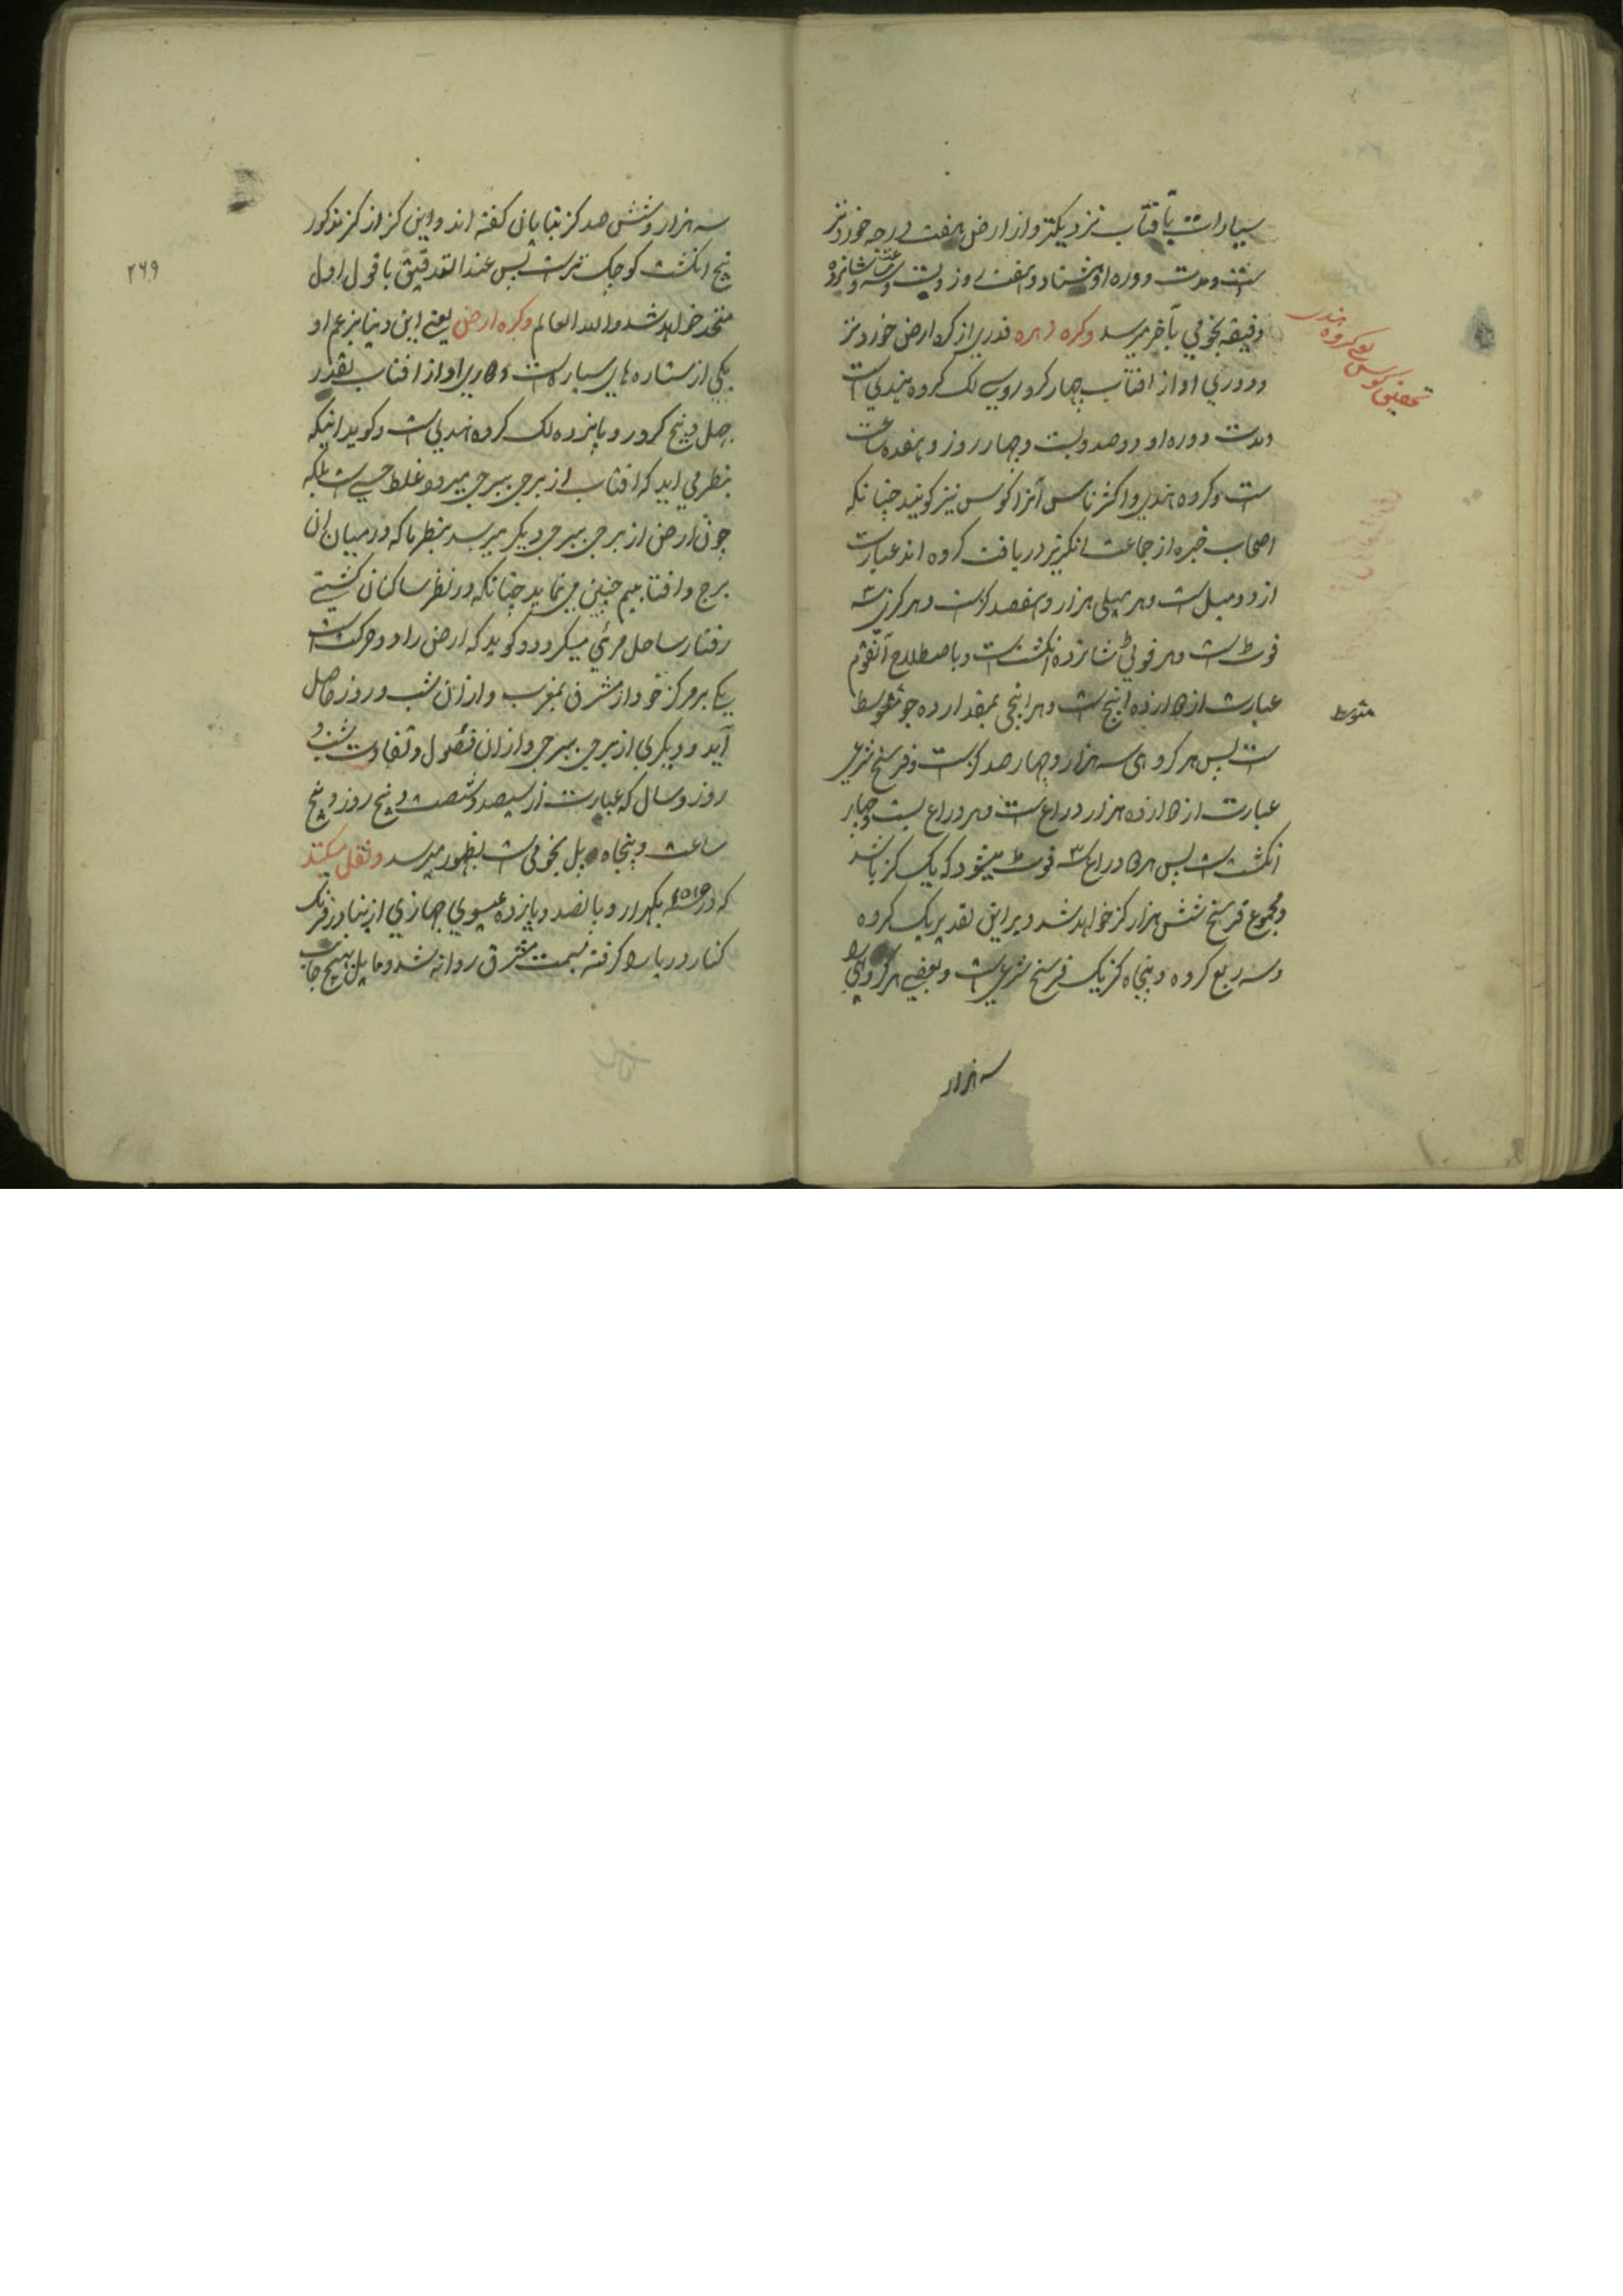 سیارات بآفتاب نزدیکتر و از ارض بهفت درجه خوردتر
است و مدت دوره او هشتاد و هفت روز و بیست و سه ساعت و شانزده
دقیقه نجومی بآخر میرسد و کره زهره قدری از کره ارض خوردتر
و دوری او از افتاب چهار کرور و سی لک کروه هندی است
و مدت دوره او دوصد و بیست و چهار روز و هفده ساعت
ست و کروه هندی و اکثر ناس آنرا کوس نیز گویند چنانکه
اصحاب خبره از جماعت انگریز دریافت کرده اند عبارت
از دو میل است و هر میلی هزار و هفصد گز است و هر گزی سه
فوٹ است و هر فوٹی شانزده انگشت است و باصطلاح آنقوم
عبارت از دوازده اینچ است و هر اینچی بمقدار ده جو متوسط
ست پس هر کروهی سه هزار و چهار صد گز است و فرسخ شرعی
عبارت از دوازده هزار دراع است و هر دراع بست و چهار
انگشت است پس هر دو دراع ۳ سه فوٹ میشود که یک گز باشد
و مجموع فرسخ شش هزار گز خواهد شد و برین تقدیر یک کروه
و سه ربع کروه و پنجاه گز یک فرسخ شرعی است و بعضی هر کروهی را
سه هزار
تحقیق کوس یعنی کروه هندی
متوسط
۲۶۹
سه هزار و شش صد گز بتابان گفته اند و این گز از گز مذکور
پنج انگشت کوچک تر است پس عند التدقیق با قول اول
متحد خواهد شد والله العالم و کره ارض یعنی این دنیا بزعم او
یکی از ستاره های سیاره است و دوری او از افتاب بقدر
چهل و پنج کرور و پانزده لک کروه هندی است و گوید اینکه
بنظر می اید که افتاب از برجی ببرجی میرود غلط حسی است بلکه
چون ارض از برجی ببرجی دیگر میرسد بنظر ما که در میان ان
برج و افتابیم چنین می نماید چنانکه در نظر ساکنان کشتی
رفتار ساحل مرئی میگردد و گوید که ارض را دو حرکت است
یکی بر مرکز خود از مشرق بمغرب و از ان شب و روز حاصل
آید و دیگری از برجی ببرجی و از ان فصول و تفاوت شب و
روز و سال که عبارت از سیصد و شصت و پنج روز و پنج
ساعت و پنجاه پل نجومی است بظهور میرسد و نقل میکند
که در سنه ۱۵۱۵ یکهزار و پانصد و پانزده عیسوی جهازی از بنادر فرنگ
کنار دریا را گرفته بسمت مشرق روانه شد و مایل بهیچ جانب